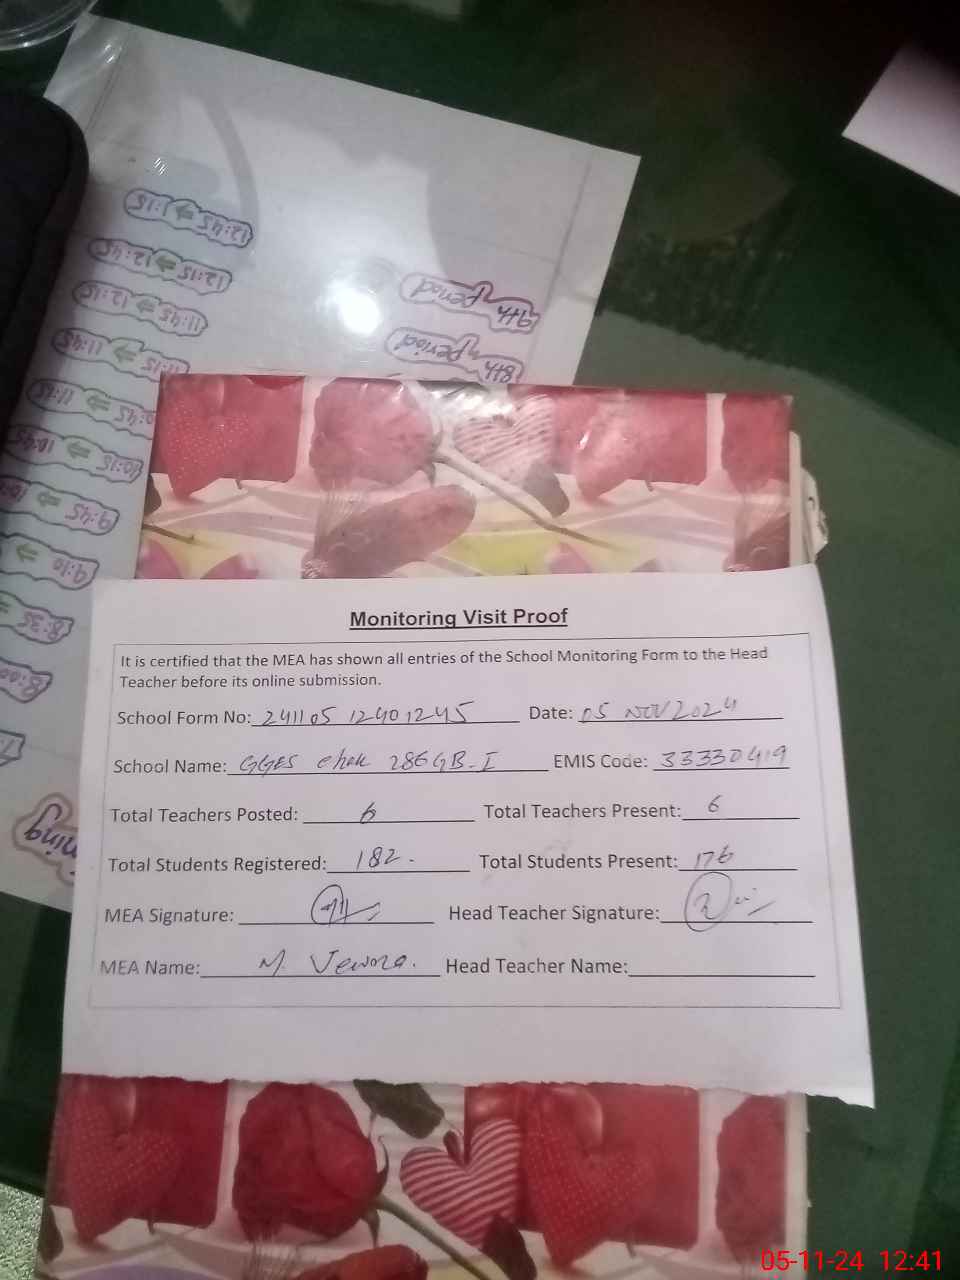 12:45 ⇒ 1:15
12:15 ⇒ 12:45
11:45 ⇒ 12:15
11:15 ⇒ 11:45
10:45 ⇒ 11:15
10:15 ⇒ 10:45
9:45 ⇒
9:10 ⇒
8:35
8:00
9th period
8th period
Monitoring Visit Proof
It is certified that the MEA has shown all entries of the School Monitoring Form to the Head
Teacher before its online submission.
School Form No: 241105 12401245 Date: 05 NOV 2024
School Name: GGES Chak 286 GB-I EMIS Code: 33330419
Total Teachers Posted: 6 Total Teachers Present: 6
Total Students Registered: 182. Total Students Present: 176
MEA Signature: Head Teacher Signature:
MEA Name: M. Head Teacher Name:
05-11-24 12:41